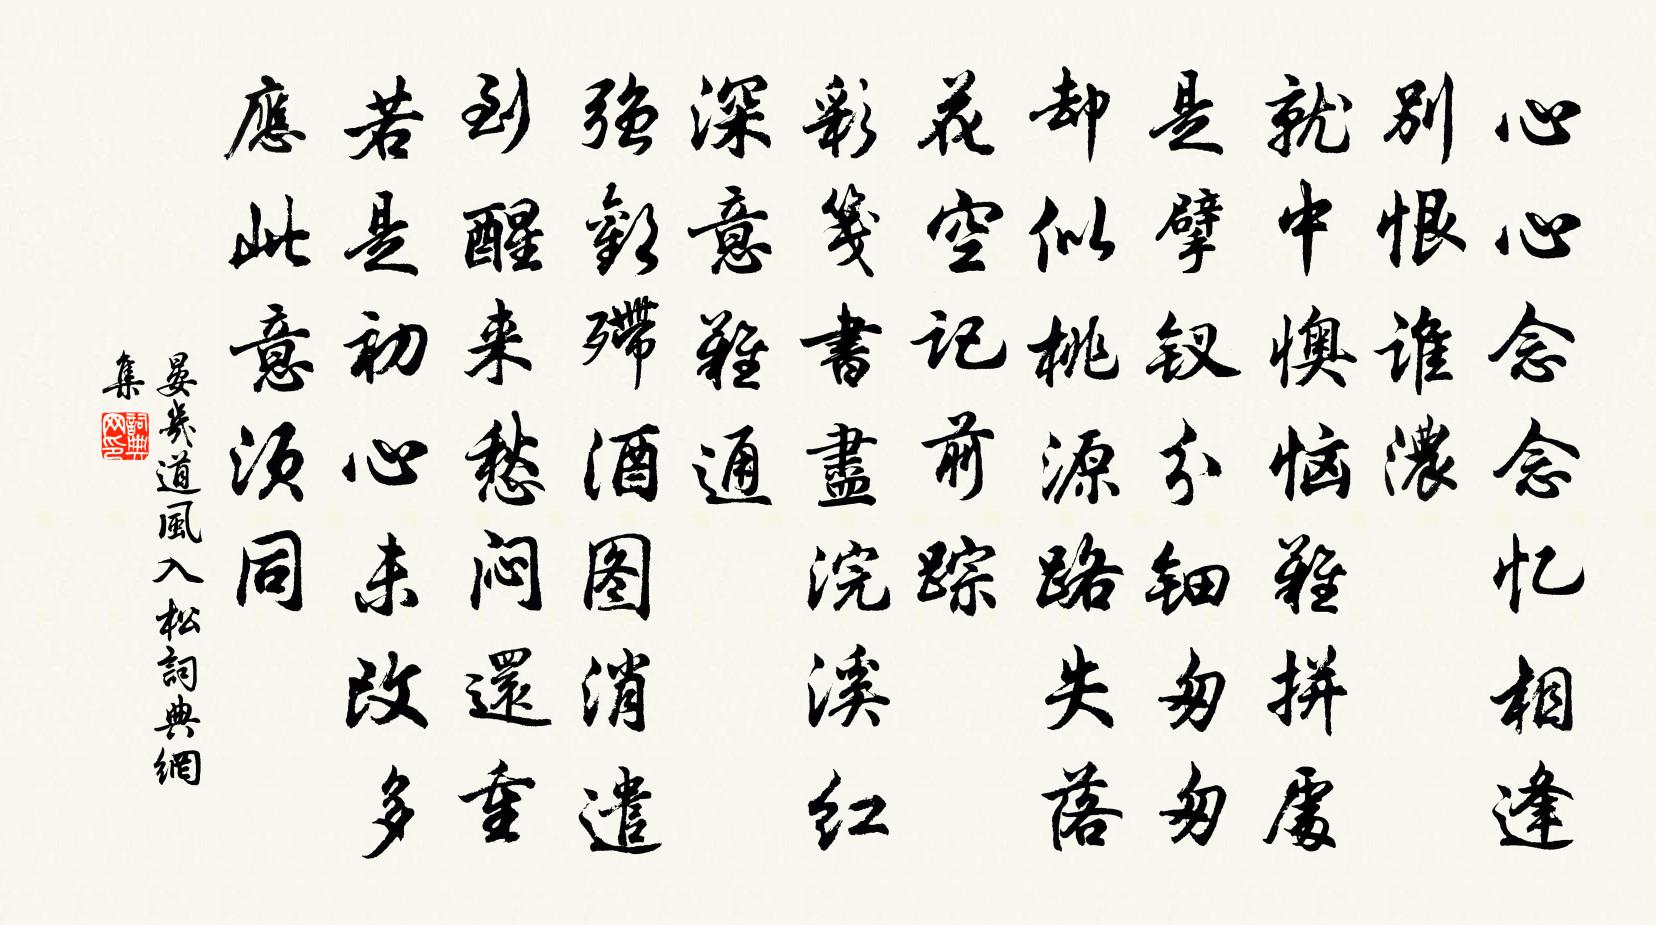 心心念念忆相逢
别恨谁濃
就中懊恼難拼處
是擘钗分钿匆匆
却似桃源路失落
花空记前踪
彩箋書盡浣溪红
深意難通
强歡殢酒图消遣
到醒来愁闷還重
若是初心未改多
應此意须同
晏幾道風入松詞典網
集
詞典网印